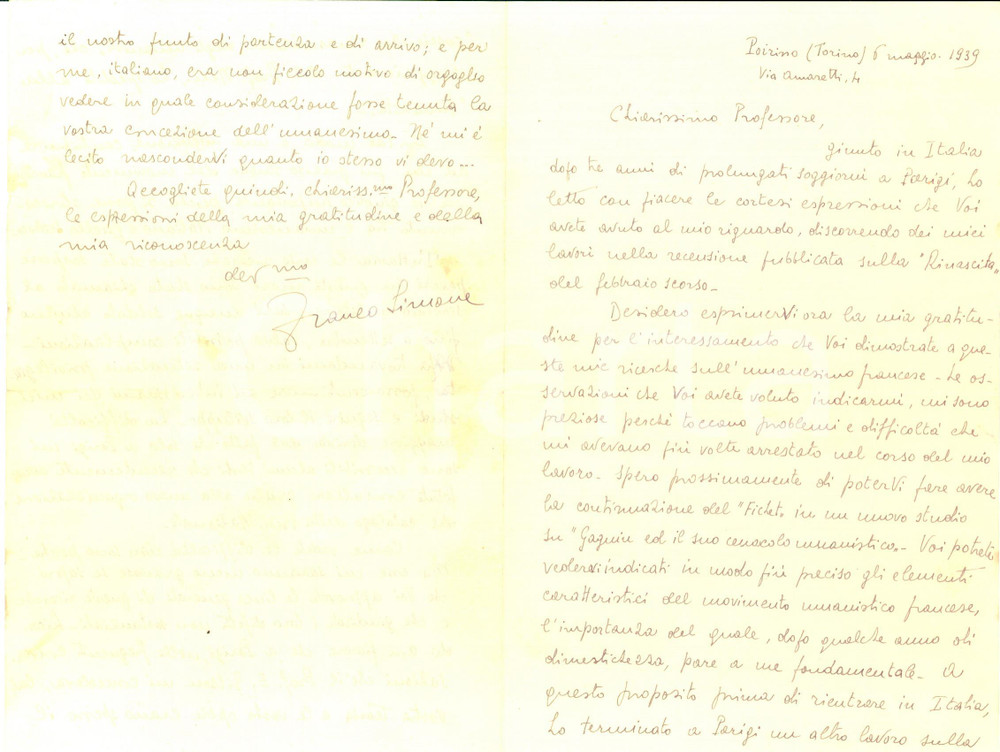 Poirino (Torino) 6 maggio. 1939
Via Amaretti, 4
Chiarissimo Professore,
giunto in Italia
dopo tre anni di prolungati soggiorni a Parigi, ho
letto con piacere le cortesi espressioni che Voi
avete avuto al mio riguardo, discorrendo dei miei
lavori nella recensione pubblicata sulla "Rinascita"
del febbraio scorso.
Desidero esprimerVi ora la mia gratitu-
dine per l'interessamento che Voi dimostrate a que-
ste mie ricerche sull'umanesimo francese. Le os-
servazioni che Voi avete voluto indicarmi, mi sono
preziose perché toccano problemi e difficoltà che
mi avevano più volte arrestato nel corso del mio
lavoro. Spero prossimamente di poterVi fare avere
la continuazione del "Fichet" in un nuovo studio
su "Gaguin ed il suo cenacolo umanistico". Voi potrete
vedervi indicati in modo più preciso gli elementi
caratteristici del movimento umanistico francese,
l'importanza del quale, dopo qualche anno di
dimestichezza, pare a me fondamentale. A
questo proposito prima di rientrare in Italia,
ho terminato a Parigi un altro lavoro sulla
il nostro punto di partenza e di arrivo; e per
me, italiano, era non piccolo motivo di orgoglio
vedere in quale considerazione fosse tenuta la
vostra concezione dell'umanesimo. Né mi è
lecito nascondervi quanto io stesso vi devo...
Accogliete quindi, chiariss.mo Professore,
le espressioni della mia gratitudine e della
mia riconoscenza
dev mo
Franco Simone